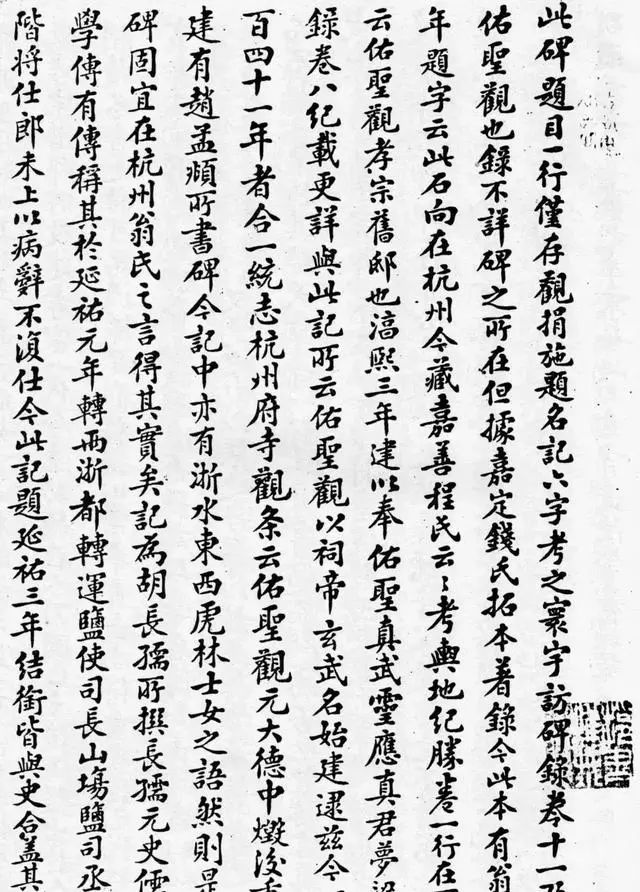 此碑題目一行僅存觀捐施題名記六字考之寰宇訪碑錄卷十一
佑聖觀也錄不詳碑之所在但據嘉定錢氏拓本著錄今此本有翁
年題字云此石向在杭州今藏嘉善程氏云〻考輿地紀勝卷一行在
云佑聖觀孝宗舊邸也淳熙三年建以奉佑聖真武靈應真君夢
錄卷八紀載更詳與此記所云佑聖觀以祠帝玄武名始建逮茲今
百四十一年者合一統志杭州府寺觀条云佑聖觀元大德中燬後重
建有趙孟頫所書碑今記中亦有浙水東西虎林士女之語然則是
碑固宜在杭州翁氏之言得其實矣記為胡長孺所撰長孺元史儒
學傳有傳稱其於延祐元年轉两浙都轉運鹽使司長山場鹽司丞
階將仕郎未上以病辭不復仕今此記題延祐三年結銜皆與史合蓋其